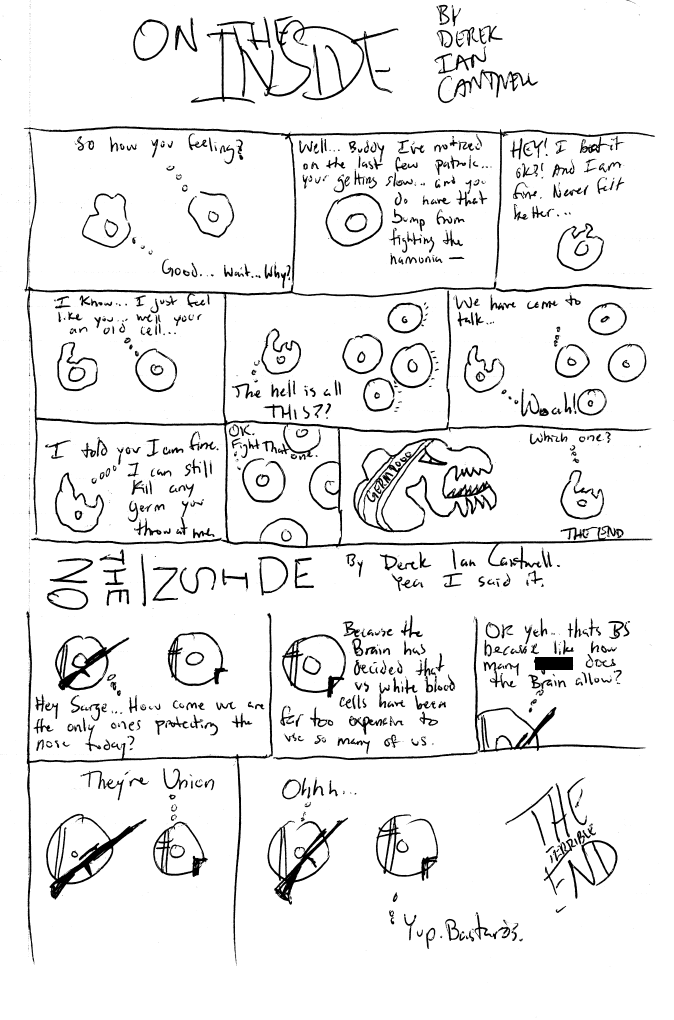 ON THE
INSIDE
BY
DEREK
IAN
CANTWELL
So how you feeling?
Good... Wait... Why?
Well... Buddy I've noticed
on the last few patrols...
your getting slow... and you
do have that
bump from
fighting the
namonia —
HEY! I beat it
ok?! And I am
fine. Never felt
better...
I know... I just feel
like you... well your
an old cell...
The hell is all
THIS??
We have come to
talk...
Woah!
I told you I am fine.
I can still
Kill any
Germ you
throw at me.
OK.
Fight That one.
GERM
Which one?
THE END
ON THE INSIDE
By Derek Ian Cantwell.
Yea I said it.
Hey Sarge... How come we are
the only ones protecting the
nose today?
Because the
Brain has
decided that
us white blood
cells have been
far too expensive to
use so many of us.
OK yeh... thats BS
because like how
many does
the Brain allow?
They're Union
Ohhh...
Yup. Bastards.
THE
TERRIBLE
END